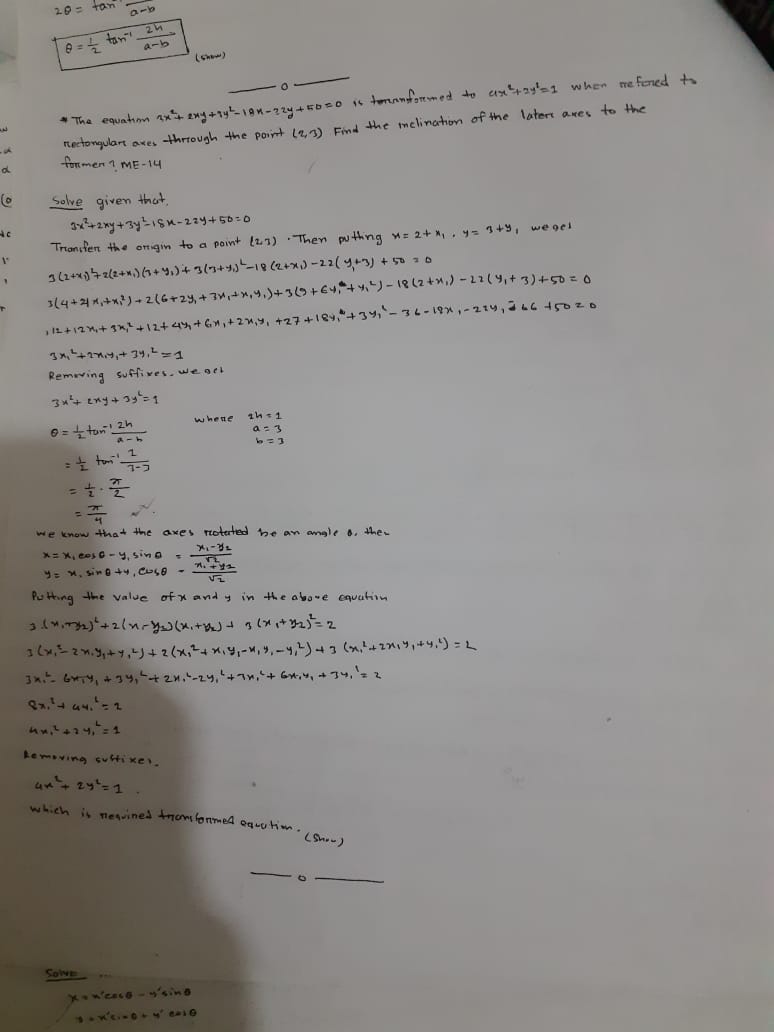 2θ = tan⁻¹ / a-b
θ = 1/2 tan⁻¹ 2h/a-b
(show)
* The equation 3x²+2xy+3y²-18x-22y+50=0 is transformed to 4x²+2y²=1 when reffered to
rectangular axes through the point (2,3) Find the inclination of the latern axes to the
former? ME-14
Solve given that,
3x²+2xy+3y²-18x-22y+50=0
Transfer the origin to a point (2,3). Then putting x=2+x₁, y=3+y₁ we get
3(2+x₁)²+2(2+x₁)(3+y₁)+3(3+y₁)²-18(2+x₁)-22(y₁+3)+50=0
3(4+4x₁+x₁²)+2(6+2y₁+3x₁+x₁y₁)+3(9+6y₁+y₁²)-18(2+x₁)-22(y₁+3)+50=0
12+12x₁+3x₁²+12+4y₁+6x₁+2x₁y₁+27+18y₁+3y₁²-36-18x₁-22y₁-66+50=0
3x₁²+2x₁y₁+3y₁²=1
Removing suffixes. we get
3x²+2xy+3y²=1
θ = 1/2 tan⁻¹ 2h/a-b where 2h=2
a=3
b=3
= 1/2 tan⁻¹ 2/3-3
= 1/2 · π/2
= π/4
We know that the axes rotated be an angle θ. then
x= x₁cosθ-y₁sinθ = x₁-y₂/√2
y= x₁sinθ+y₁cosθ = x₁+y₂/√2
Putting the value of x and y in the above equation
3(x₁-y₂)²+2(x₁-y₂)(x₁+y₂)+3(x₁+y₂)²=2
3(x₁²-2x₁y₁+y₁²)+2(x₁²+x₁y₁-x₁y₁-y₁²)+3(x₁²+2x₁y₁+y₁²)=2
3x₁²-6x₁y₁+3y₁²+2x₁²-2y₁²+3x₁²+6x₁y₁+3y₁²=2
8x₁²+4y₁²=2
4x₁²+2y₁²=1
Removing suffixes.
4x²+2y²=1.
Which is required transformed equation.
(Show)
Solve
x=x'cosθ-y'sinθ
y=x'sinθ+y'cosθ